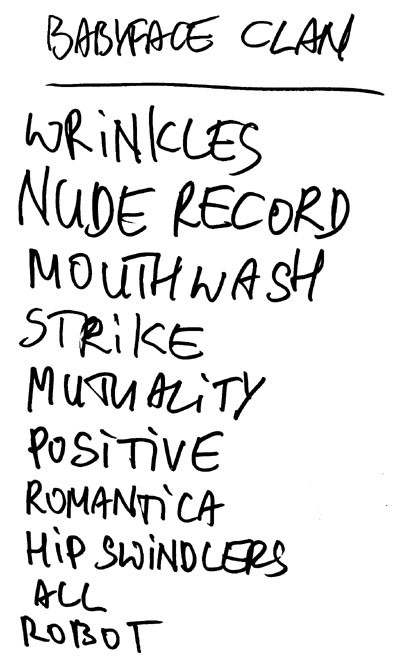 BABYFACE CLAN
WRiNKLES
NUDE RECORD
MOUTHWASH
STRiKE
MUTUALiTY
POSiTiVE
ROMANTiCA
HiP SWiNDLERS
ALL
ROBOT